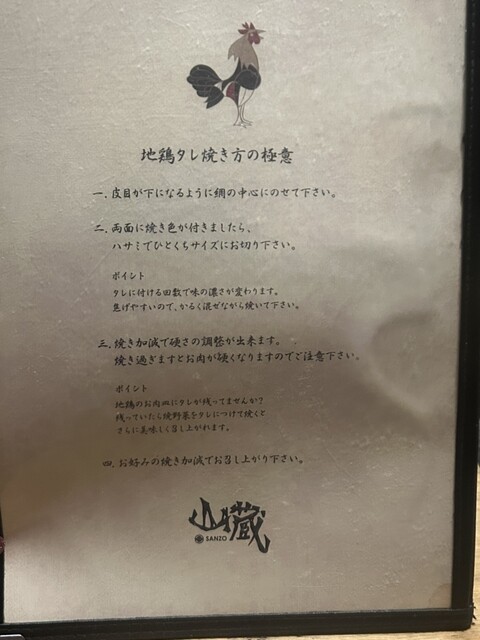 地鶏タレ焼き方の極意
一. 皮目が下になるように網の中心にのせて下さい。
二. 両面に焼き色が付きましたら、
ハサミでひとくちサイズにお切り下さい。
ポイント
タレに付ける回数で味の濃さが変わります。
焦げやすいので、かるく混ぜながら焼いて下さい。
三. 焼き加減で硬さの調整が出来ます。
焼き過ぎますとお肉が硬くなりますのでご注意下さい。
ポイント
地鶏のお肉皿にタレが残ってませんか?
残っていたら焼野菜をタレにつけて焼くと
さらに美味しく召し上がれます。
四. お好みの焼き加減でお召し上がり下さい。
山蔵
SANZO